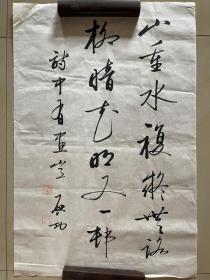 山重水複疑無路
柳暗花明又一邨
詩中有畫意 啟功